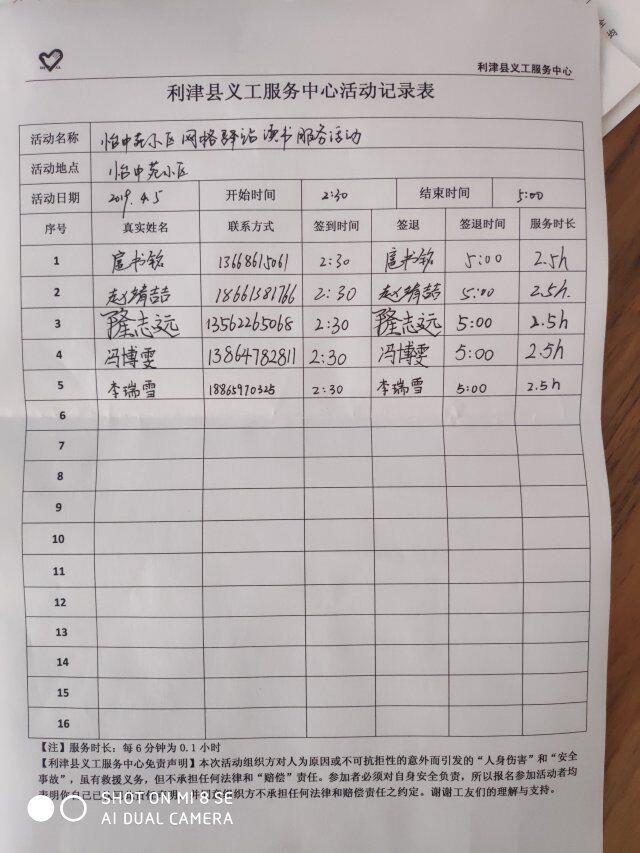 利津县义工服务中心
利津县义工服务中心活动记录表
活动名称 怡中苑小区网格驿站读书服务活动
活动地点 怡中苑小区
活动日期 2019.4.5 开始时间 2:30 结束时间 5:00
序号 真实姓名 联系方式 签到时间 签退 签退时间 服务时长
1 扈书铭 13668615061 2:30 扈书铭 5:00 2.5h
2 赵靖喆 18661381766 2:30 赵靖喆 5:00 2.5h.
3 隆志远 13562265068 2:30 隆志远 5:00 2.5h
4 冯博雯 13864782811 2:30 冯博雯 5:00 2.5h
5 李瑞雪 18865970325 2:30 李瑞雪 5:00 2.5h
6
7
8
9
10
11
12
13
14
15
16
【注】服务时长：每6分钟为0.1小时
【利津县义工服务中心免责声明】本次活动组织方对人为原因或不可抗拒性的意外而引发的“人身伤害”和“安全
事故”，虽有救援义务，但不承担任何法律和“赔偿”责任。参加者必须对自身安全负责，所以报名参加活动者均
组织方不承担任何法律和赔偿责任之约定。谢谢工友们的理解与支持。
SHOT ON MI 8 SE
AI DUAL CAMERA